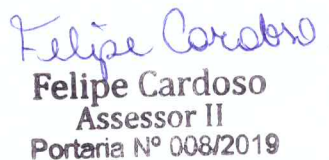 Felipe Cardoso
Felipe Cardoso
Assessor II
Portaria Nº 008/2019